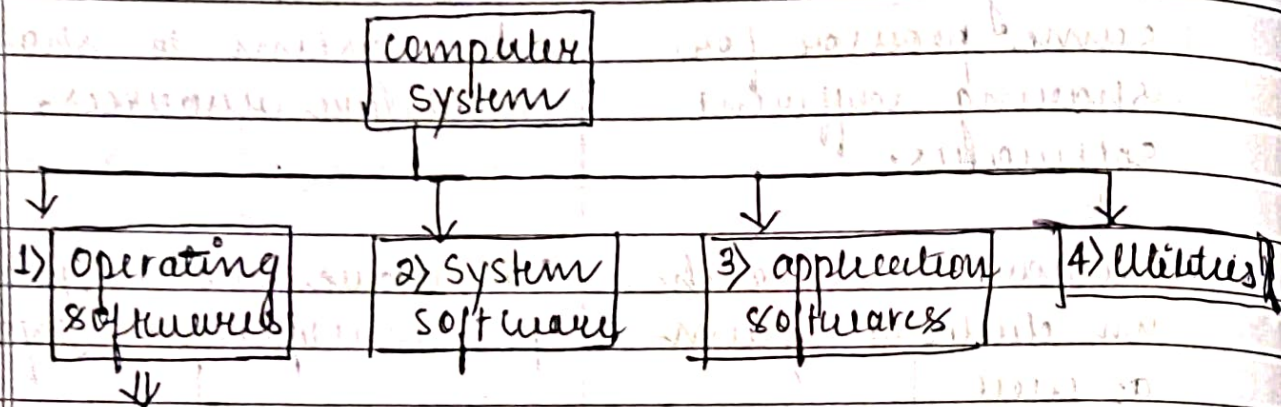 computer
system
1) Operating
softwares
2) System
software
3) application
softwares
4) Utilities